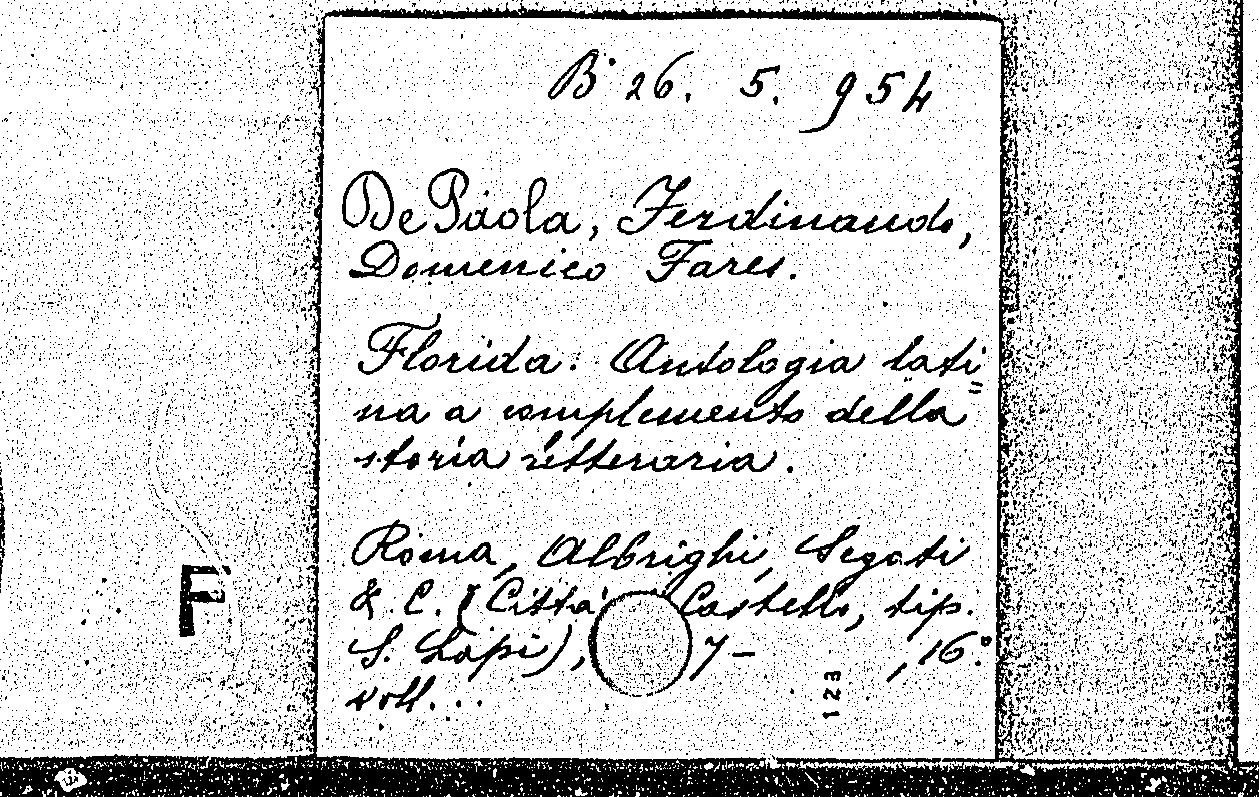 B 26. 5. 954
De Paola, Ferdinando,
Domenico Fares.
Florida. Antologia lati=
na a complemento della
storia letteraria.
Roma, Albrighi, Segati
& C. (Città Castello, tip.
S. Lapi), 7- , 16.°
voll. . .
F
123